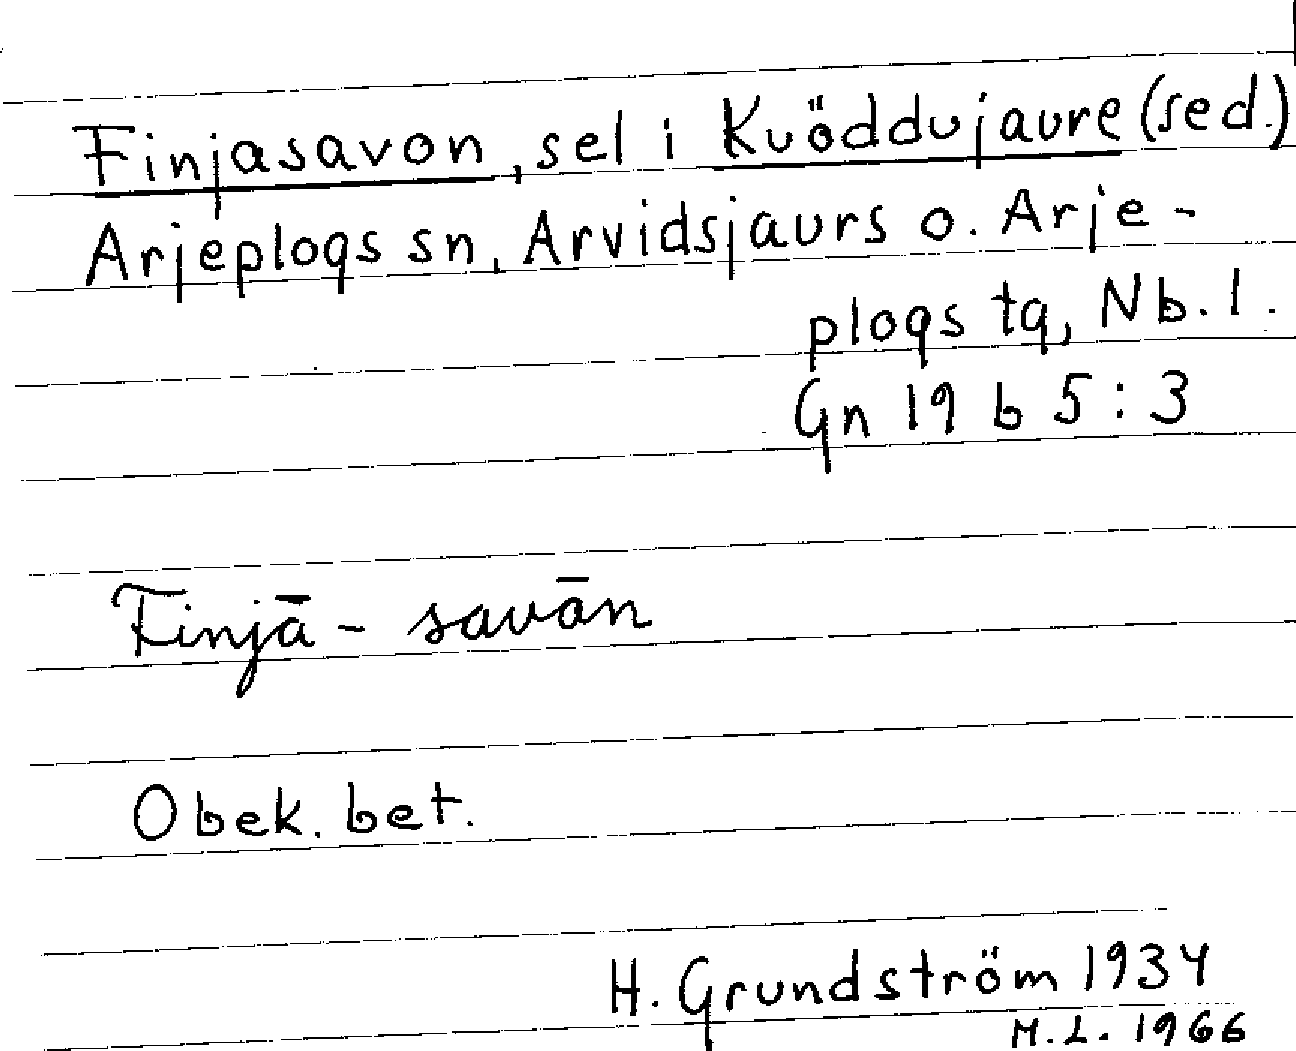 Finjasavon, sel i Kuöddujaure (sed.)
Arjeplogs sn, Arvidsjaurs o. Arje-
plogs tg, Nb. l.
Gn 19 b 5:3
Finjā - savān
Obek. bet.
H. Grundström 1934
M.L. 1966